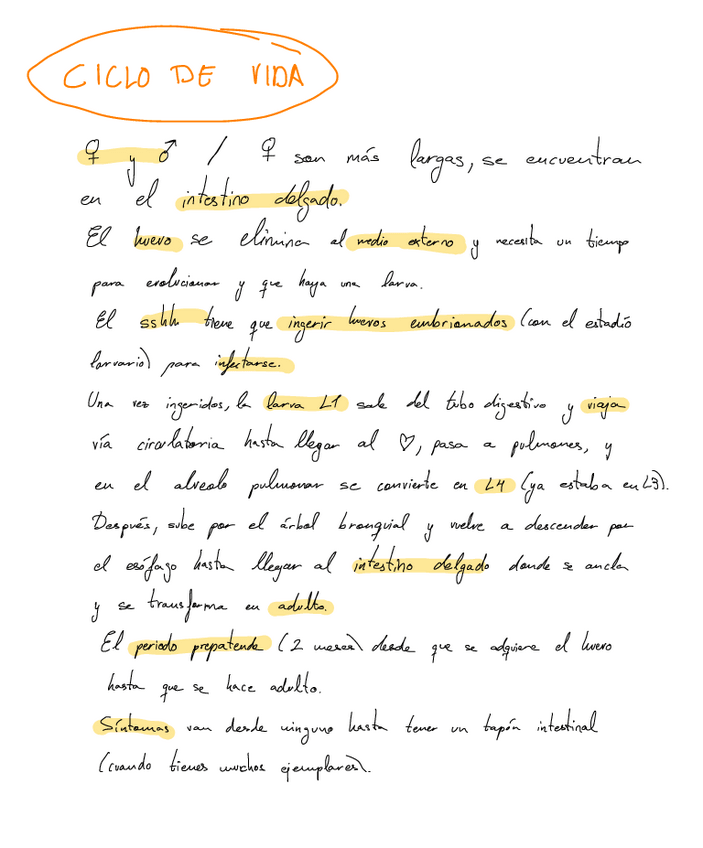 CICLO DE VIDA
♀ y ♂ / ♀ son más largas, se encuentran
en el intestino delgado.
El huevo se elimina al medio externo y necesita un tiempo
para evolucionar y que haya una larva.
El sshh tiene que ingerir huevos embrionados (con el estadío
larvario) para infectarse.
Una vez ingeridos, la larva L1 sale del tubo digestivo y viaja
vía circulatoria hasta llegar al ♡, pasa a pulmones, y
en el alveolo pulmonar se convierte en L4 (ya estaba en L3).
Después, sube por el árbol bronquial y vuelve a descender por
el esófago hasta llegar al intestino delgado donde se ancla
y se transforma en adulto.
El periodo prepatende (2 meses) desde que se adquiere el huevo
hasta que se hace adulto.
Síntomas van desde ninguno hasta tener un tapón intestinal
(cuando tienes muchos ejemplares).